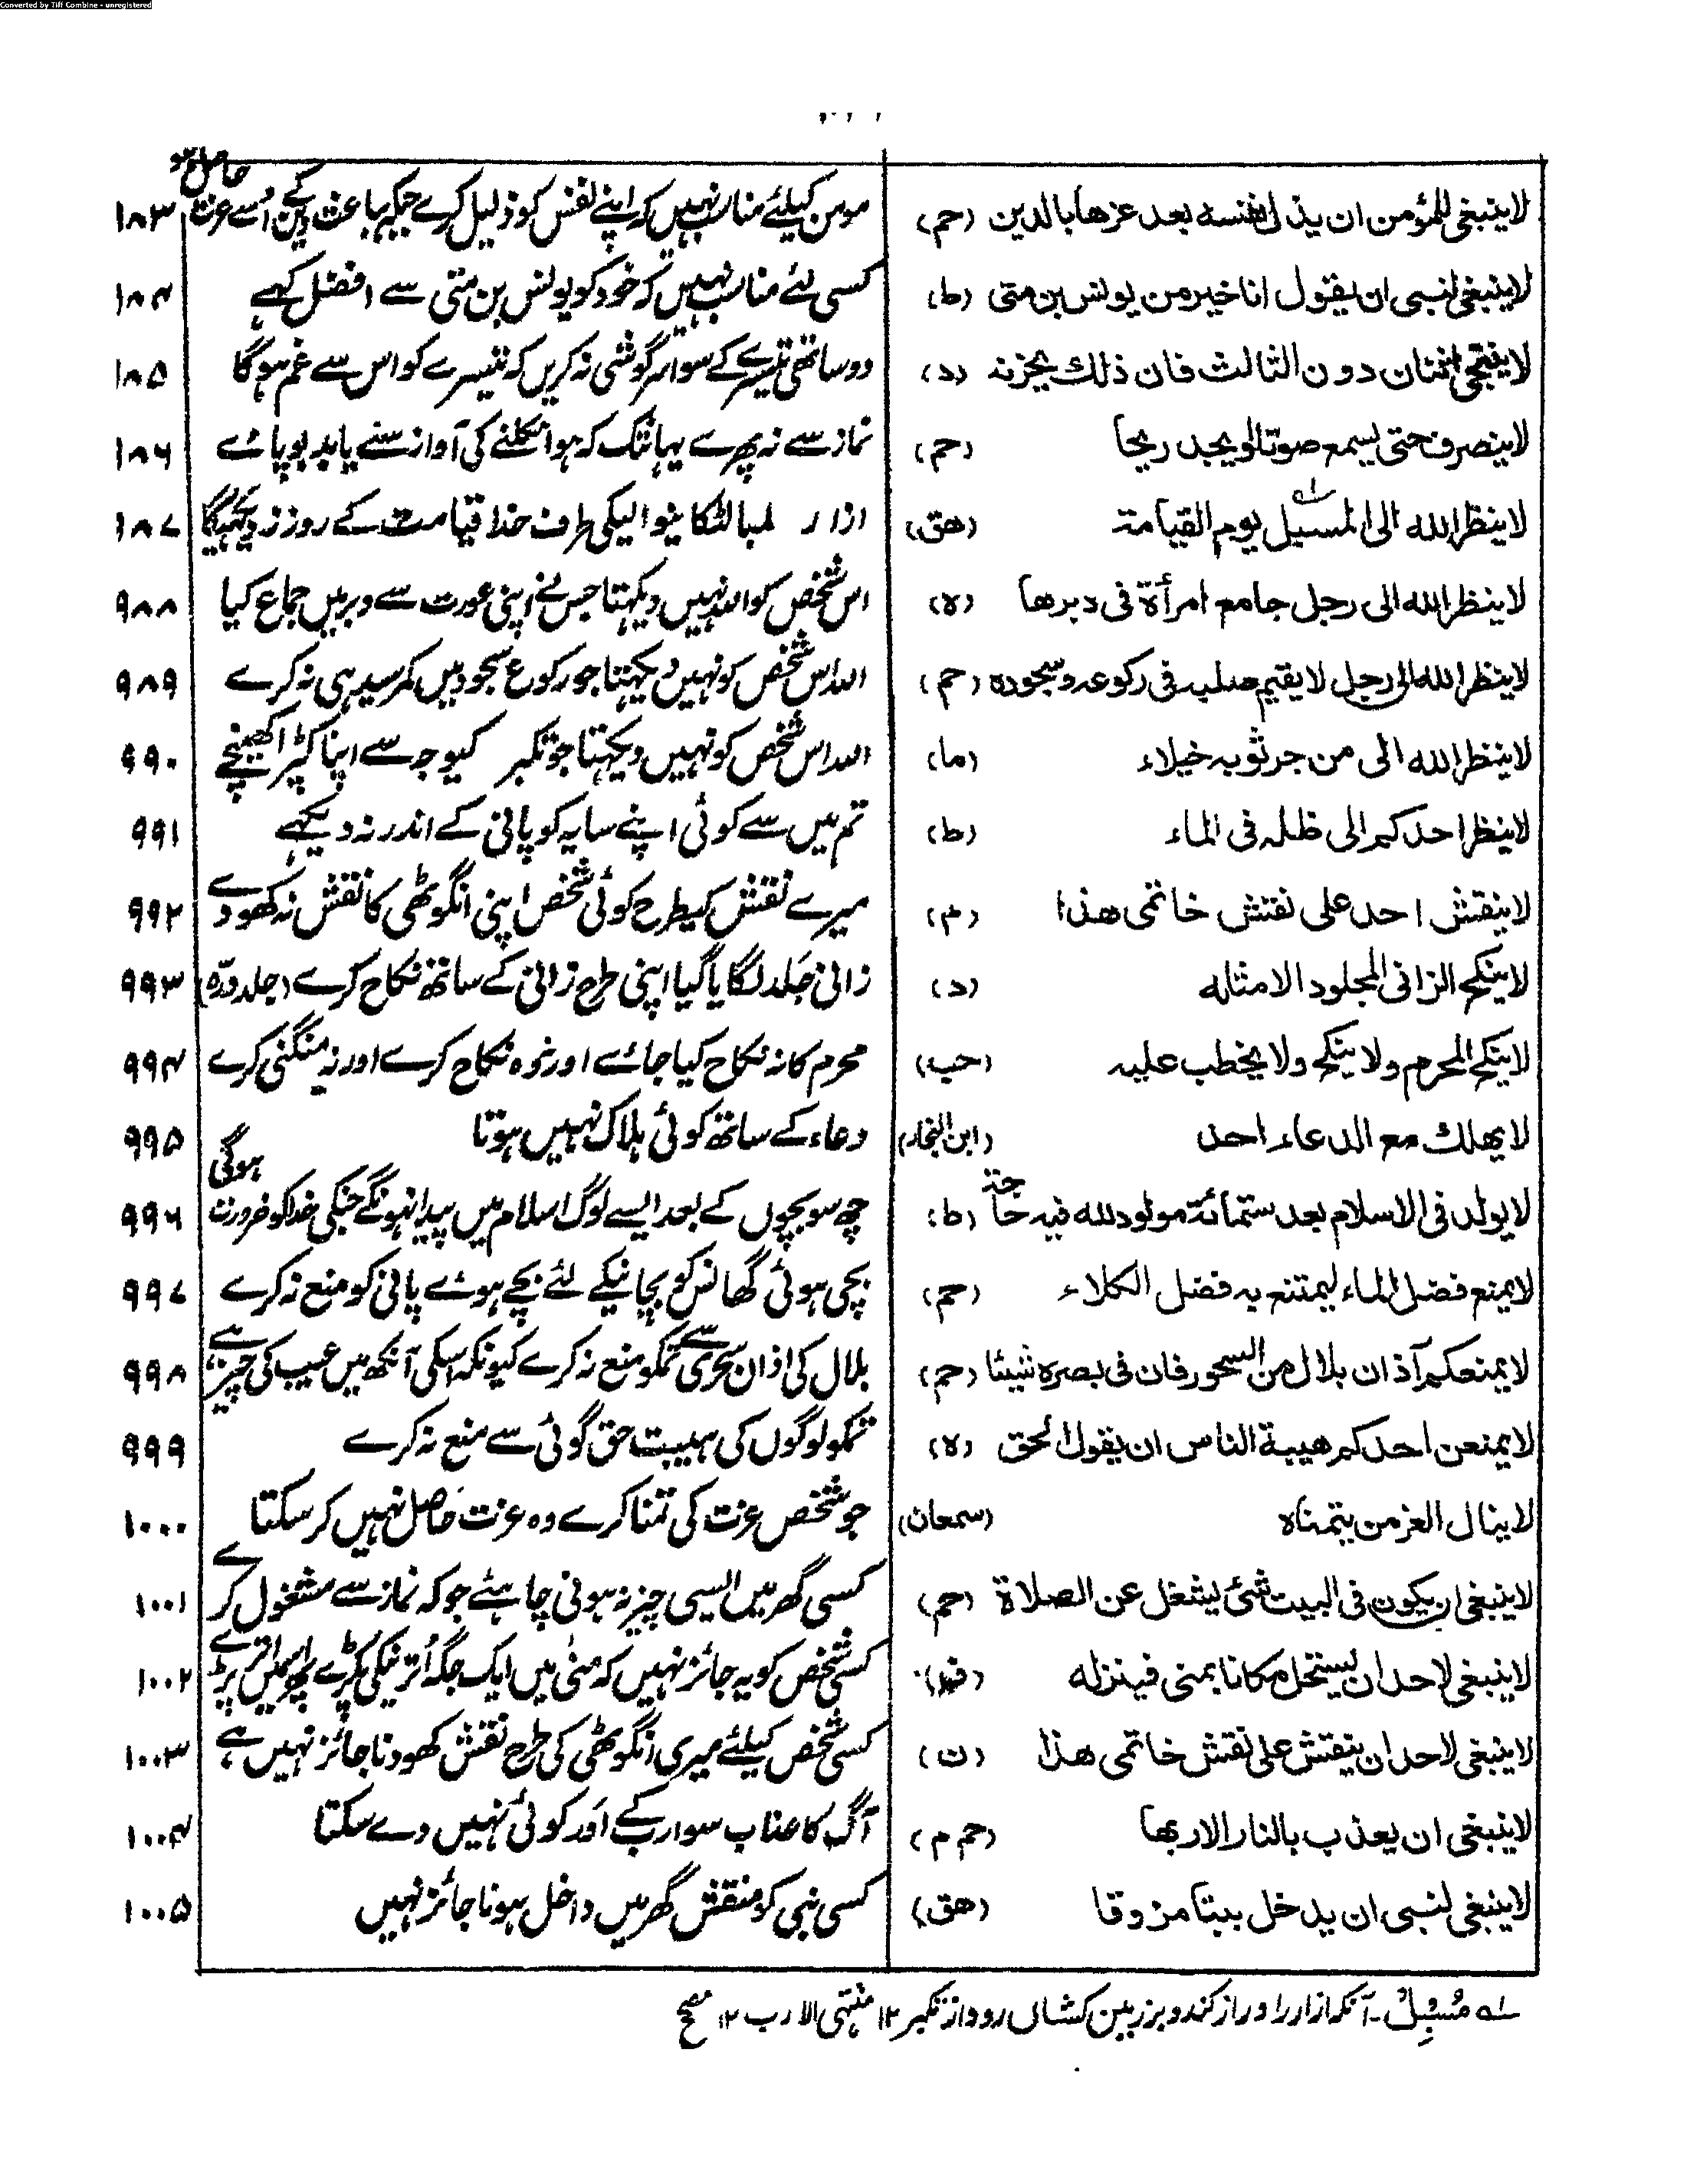 Converted by Tiff Combine - unregistered
لا ينبغى للمؤمن ان يذل نفسه بعد عزها بالدين (حم) مومن کیلئے مناسب نہیں کہ اپنے نفس کو ذلیل کرے جبکہ باعث دین کے اُسے عزت حاصل ہو ۱۸۳
لا ينبغى لنبى ان يقول انا خير من يونس بن متى (ط) کسی لئے مناسب نہیں کہ خود کو یونس بن متی سے افضل کہے ۱۸۴
لا ينتجى اثنان دون الثالث فان ذلك يحزنه (د) دو ساتھی تیسرے کے سوا سرگوشی نہ کریں کہ تیسرے کو اس سے غم ہوگا ۱۸۵
لا ينصرف حتى يسمع صوتا او يجد ريحا (حم) نماز سے نہ پھرے یہانتک کہ ہوا نکلنے کی آواز سنے یا بدبو پائے ۱۸۶
لا ينظر الله الى المسبل يوم القيامة (هق) ازار لمبا لٹکانیوالیکی طرف خدا قیامت کے روز نہ دیکھیگا ۱۸۷
لا ينظر الله الى رجل جامع امرأة فى دبرها (ه) اس شخص کو اللہ نہیں دیکہتا جس نے اپنی عورت سے دبر میں جماع کیا ۹۸۸
لا ينظر الله الى رجل لا يقيم صلبه فى ركوعه وسجوده (حم) اللہ اس شخص کو نہیں دیکہتا جو رکوع سجود میں کمر سیدہی نہ کرے ۹۸۹
لا ينظر الله الى من جر ثوبه خيلاء (ما) اللہ اس شخص کو نہیں دیکہتا جو تکبر کیوجہ سے اپنا کپڑا کھینچے ۹۹۰
لا ينظر احدكم الى ظله فى الماء (ط) تم میں سے کوئی اپنے سایہ کو پانی کے اندر نہ دیکہے ۹۹۱
لا ينقش احد على نقش خاتمى هذا (م) میرے نقش کیطرح کوئی شخص اپنی انگوٹھی کا نقش نہ کھودے ۹۹۲
لا ينكح الزانى المجلود الا مثله (د) زانی جَلد لگایا گیا اپنی طرح زانی کے ساتھ نکاح کرے (جلد درّہ) ۹۹۳
لا ينكح المحرم ولا ينكح ولا يخطب عليه (حب) محرم کا نہ نکاح کیا جائے اور نہ وہ نکاح کرے اور نہ منگنی کرے ۹۹۴
لا يهلك مع الدعاء احد (ابن النجار) دعاء کے ساتھ کوئی ہلاک نہیں ہوتا ۹۹۵
لا يولد فى الاسلام بعد ستمائة مولود لله فيه حاجة (ط) چھ سو بچوں کے بعد ایسے لوگ اسلام میں پیدا نہونگے جنکی خدا کو ضرورت ہوگی ۹۹۶
لا يمنع فضل الماء ليمتنع به فضل الكلاء (حم) بچی ہوئی گھانس کو بچانیکے لئے بچے ہوئے پانی کو منع نہ کرے ۹۹۷
لا يمنعكم آذان بلال من السحور فان فى بصره شيئا (حم) بلال کی اذان سحری سے تمکو منع نہ کرے کیونکہ اسکی آنکھ میں عیب کی چیز ہے ۹۹۸
لا يمنعن احدكم هيبة الناس ان يقول الحق (ه) تمکو لوگوں کی ہیبت حق گوئی سے منع نہ کرے ۹۹۹
لا ينال العز من يتمناه (سمعان) جو شخص عزت کی تمنا کرے وہ عزت حاصل نہیں کر سکتا ۱۰۰۰
لا ينبغى ان يكون فى البيت شئ يشغل عن الصلاة (حم) کسی گھر میں ایسی چیز نہ ہونی چاہئے جو کہ نماز سے مشغول کرے ۱۰۰۱
لا ينبغى لاحد ان يستحل مكانا بمنى فينزله کسی شخص کو یہ جائز نہیں کہ منیٰ میں ایک جگہ اُترنیکی پکڑے پھر اسمیں اتر پڑے ۱۰۰۲
لا ينبغى لاحد ان ينقش على نقش خاتمى هذا (ن) کسی شخص کیلئے میری انگوٹھی کی طرح نقش کھودنا جائز نہیں ہے ۱۰۰۳
لا ينبغى ان يعذب بالنار الا ربها (حم م) آگ کا عذاب سوا رب کے اور کوئی نہیں دے سکتا ۱۰۰۴
لا ينبغى لنبى ان يدخل بيتا مزوقا (هق) کسی نبی کو منقش گھر میں داخل ہونا جائز نہیں ۱۰۰۵
له مُسْبِلْ ۔ آنکہ ازار را دراز کند و بر زمین کشاں رود از تکبر ۱۲ منتہی الارب ۱۲ مصحح